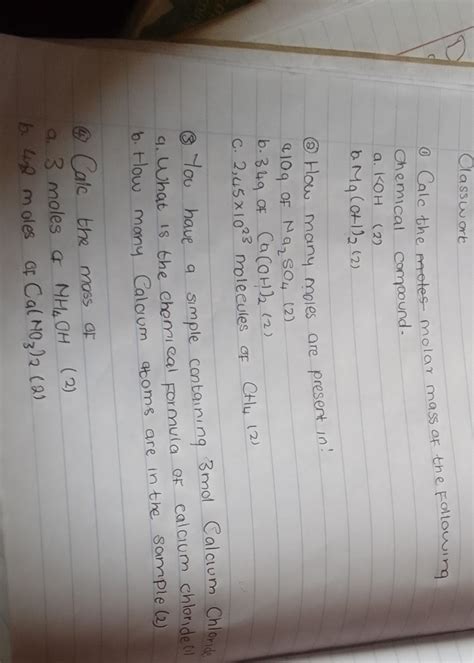 Classwork
① Calc the moles molar mass of the following
chemical compound.
a. KOH (2)
b. Mg(OH)₂ (2)
② How many moles are present in:
a. 10g of Na₂SO₄ (2)
b. 34g of Ca(OH)₂ (2)
c. 2,45x10²³ molecules of CH₄ (2)
③ You have a simple containing 3mol Calcium Chloride
a. What is the chemical formula of calcium chloride (1)
b. How many Calcium atoms are in the sample (2)
④ Calc the mass of
a. 3 moles of NH₄OH (2)
b. moles of Ca(NO₃)₂ (2)